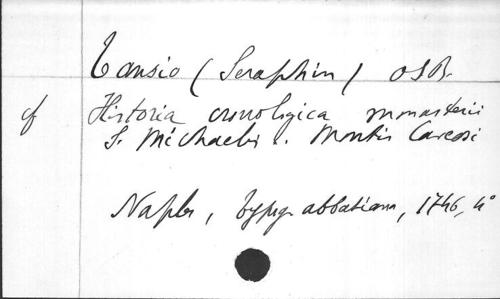 Tansio (Seraphin) OSB
cf Historia cronologica monasterii
S. Michaelis. Montis Caveosi
Naples, typogr abbatiana, 1746, 4°